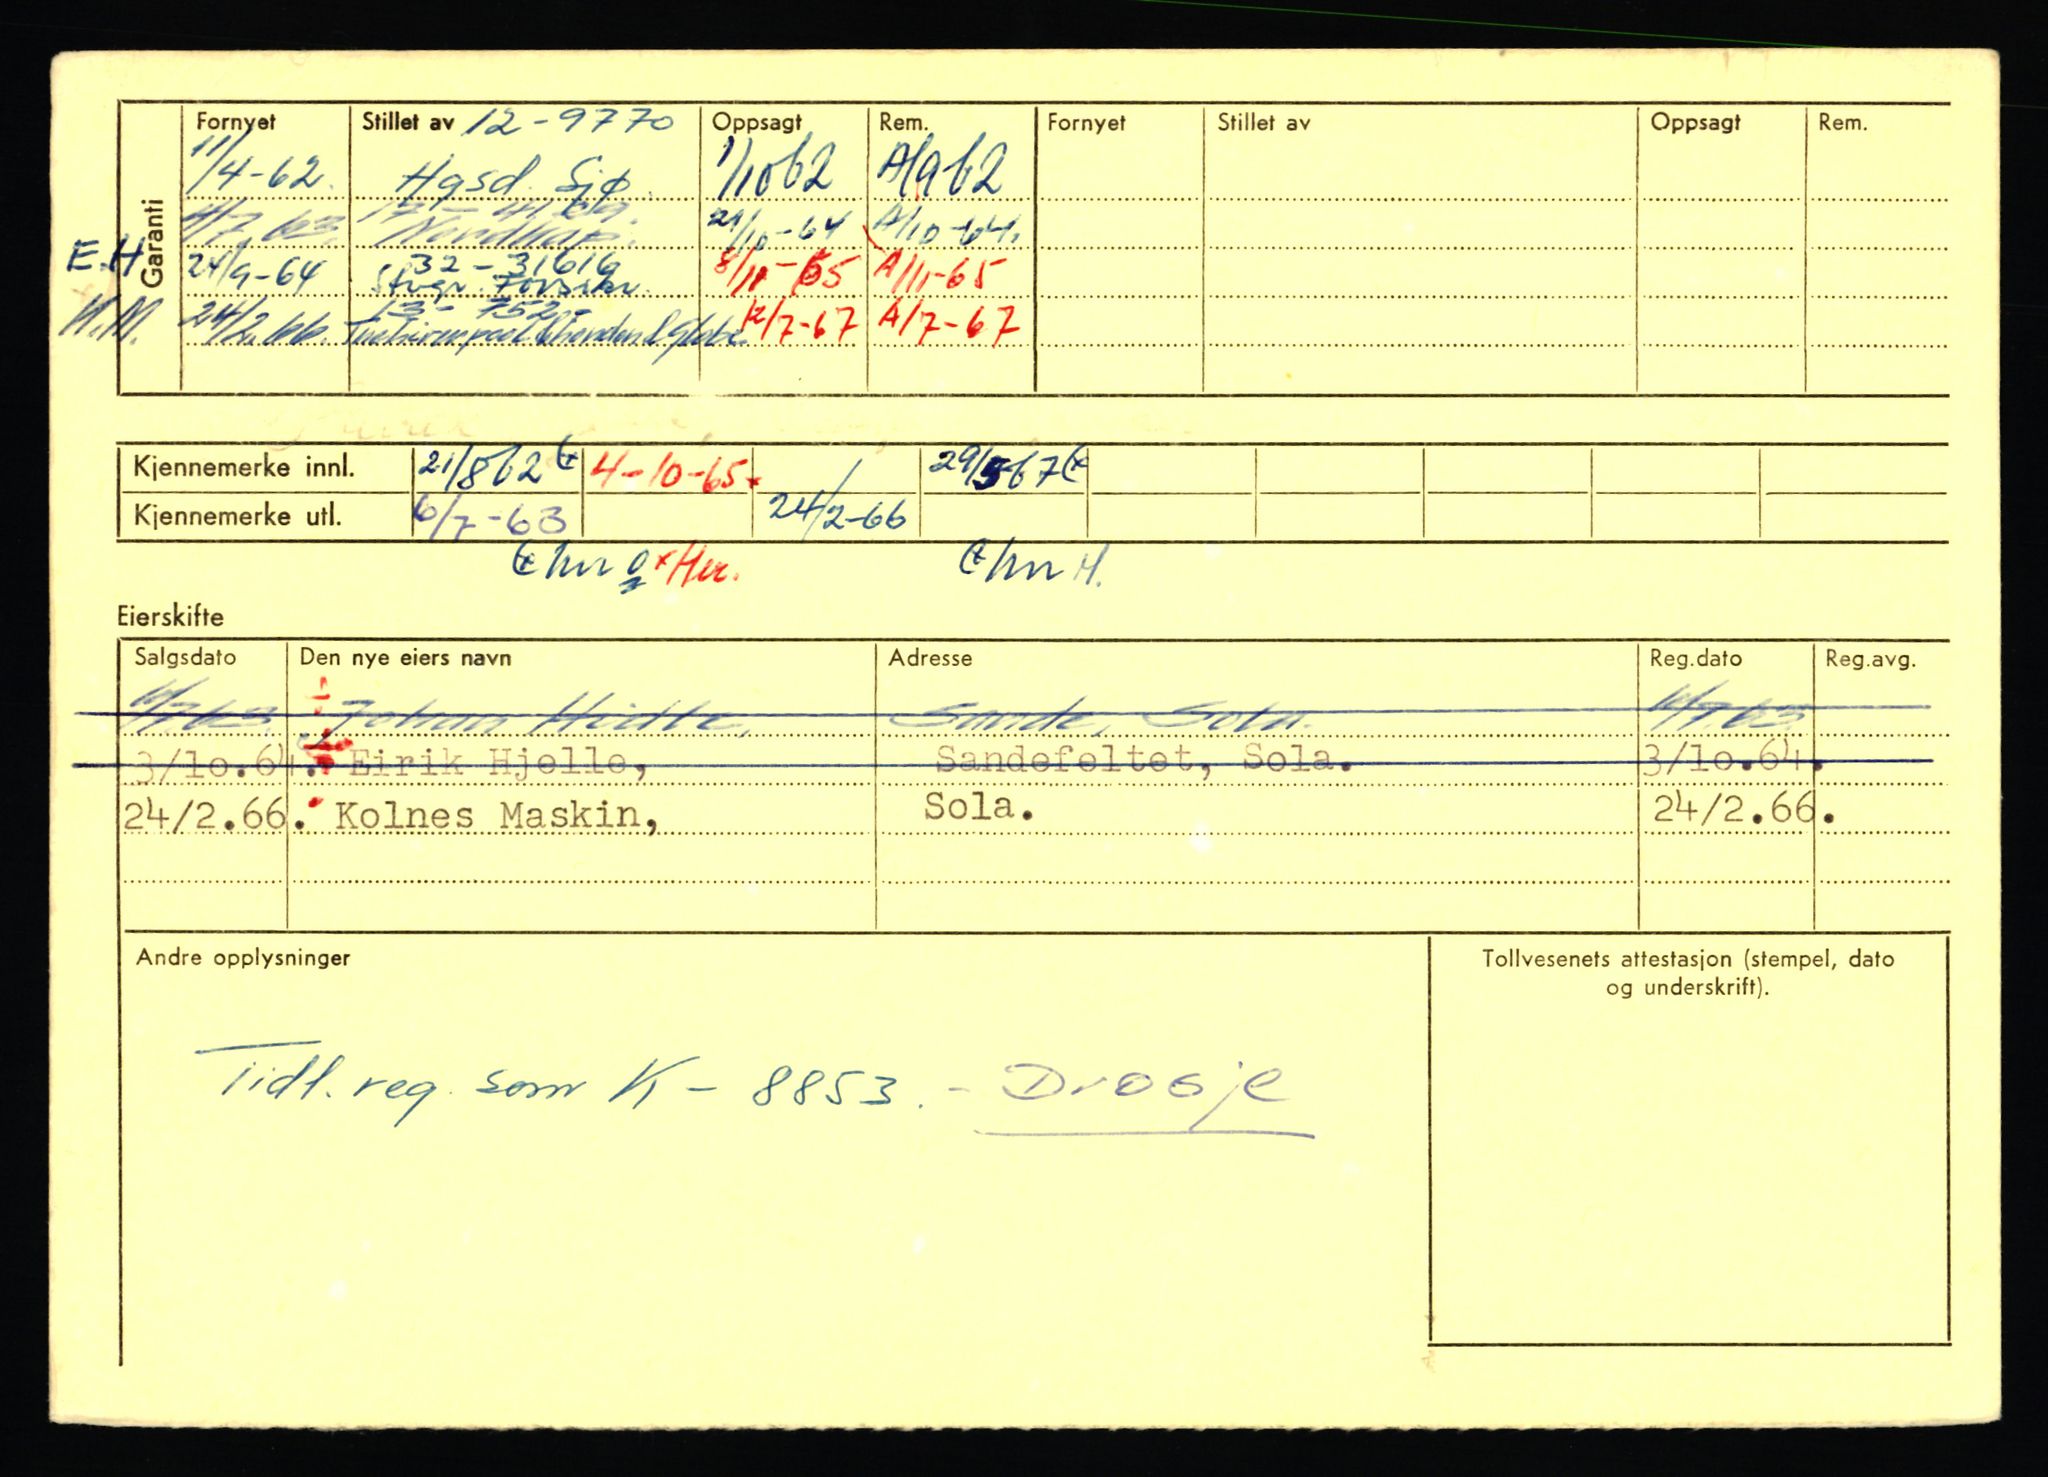 Garanti
Fornyet Stillet av 12-9770 Oppsagt Rem. Fornyet Stillet av Oppsagt Rem.
11/4-62. Hgsd. Sjø. 1/10 62 A/9 62
Nordkap. 21/10-64 A/10-64.
E.H 24/9-64 32-31616 8/11-65 A/11-65
Stvgr. Forsikr.
13-752-
24/2.66. 12/7-67 A/7-67
Kjennemerke innl. 21/8 62 4-10-65 29/5 67
Kjennemerke utl. 6/7-63 24/2-66
Eierskifte
Salgsdato Den nye eiers navn Adresse Reg.dato Reg.avg.
Sande, Sola.
3/10.64. Eirik Hjelle, Sandefeltet, Sola. 3/10.64.
24/2.66. Kolnes Maskin, Sola. 24/2.66.
Andre opplysninger
Tollvesenets attestasjon (stempel, dato
og underskrift).
Tidl. reg. som K-8853. - Drosje